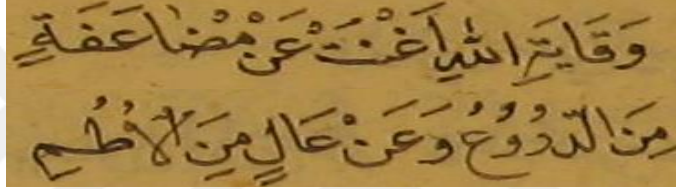 وَقَايَةِ اللهِ اَغْنَتْ عَنْ مُضَاعَفَةٍ
مِنَ الدُّرُوْعِ وَعَنْ عَالٍ مِنَ الْاُطُمِ